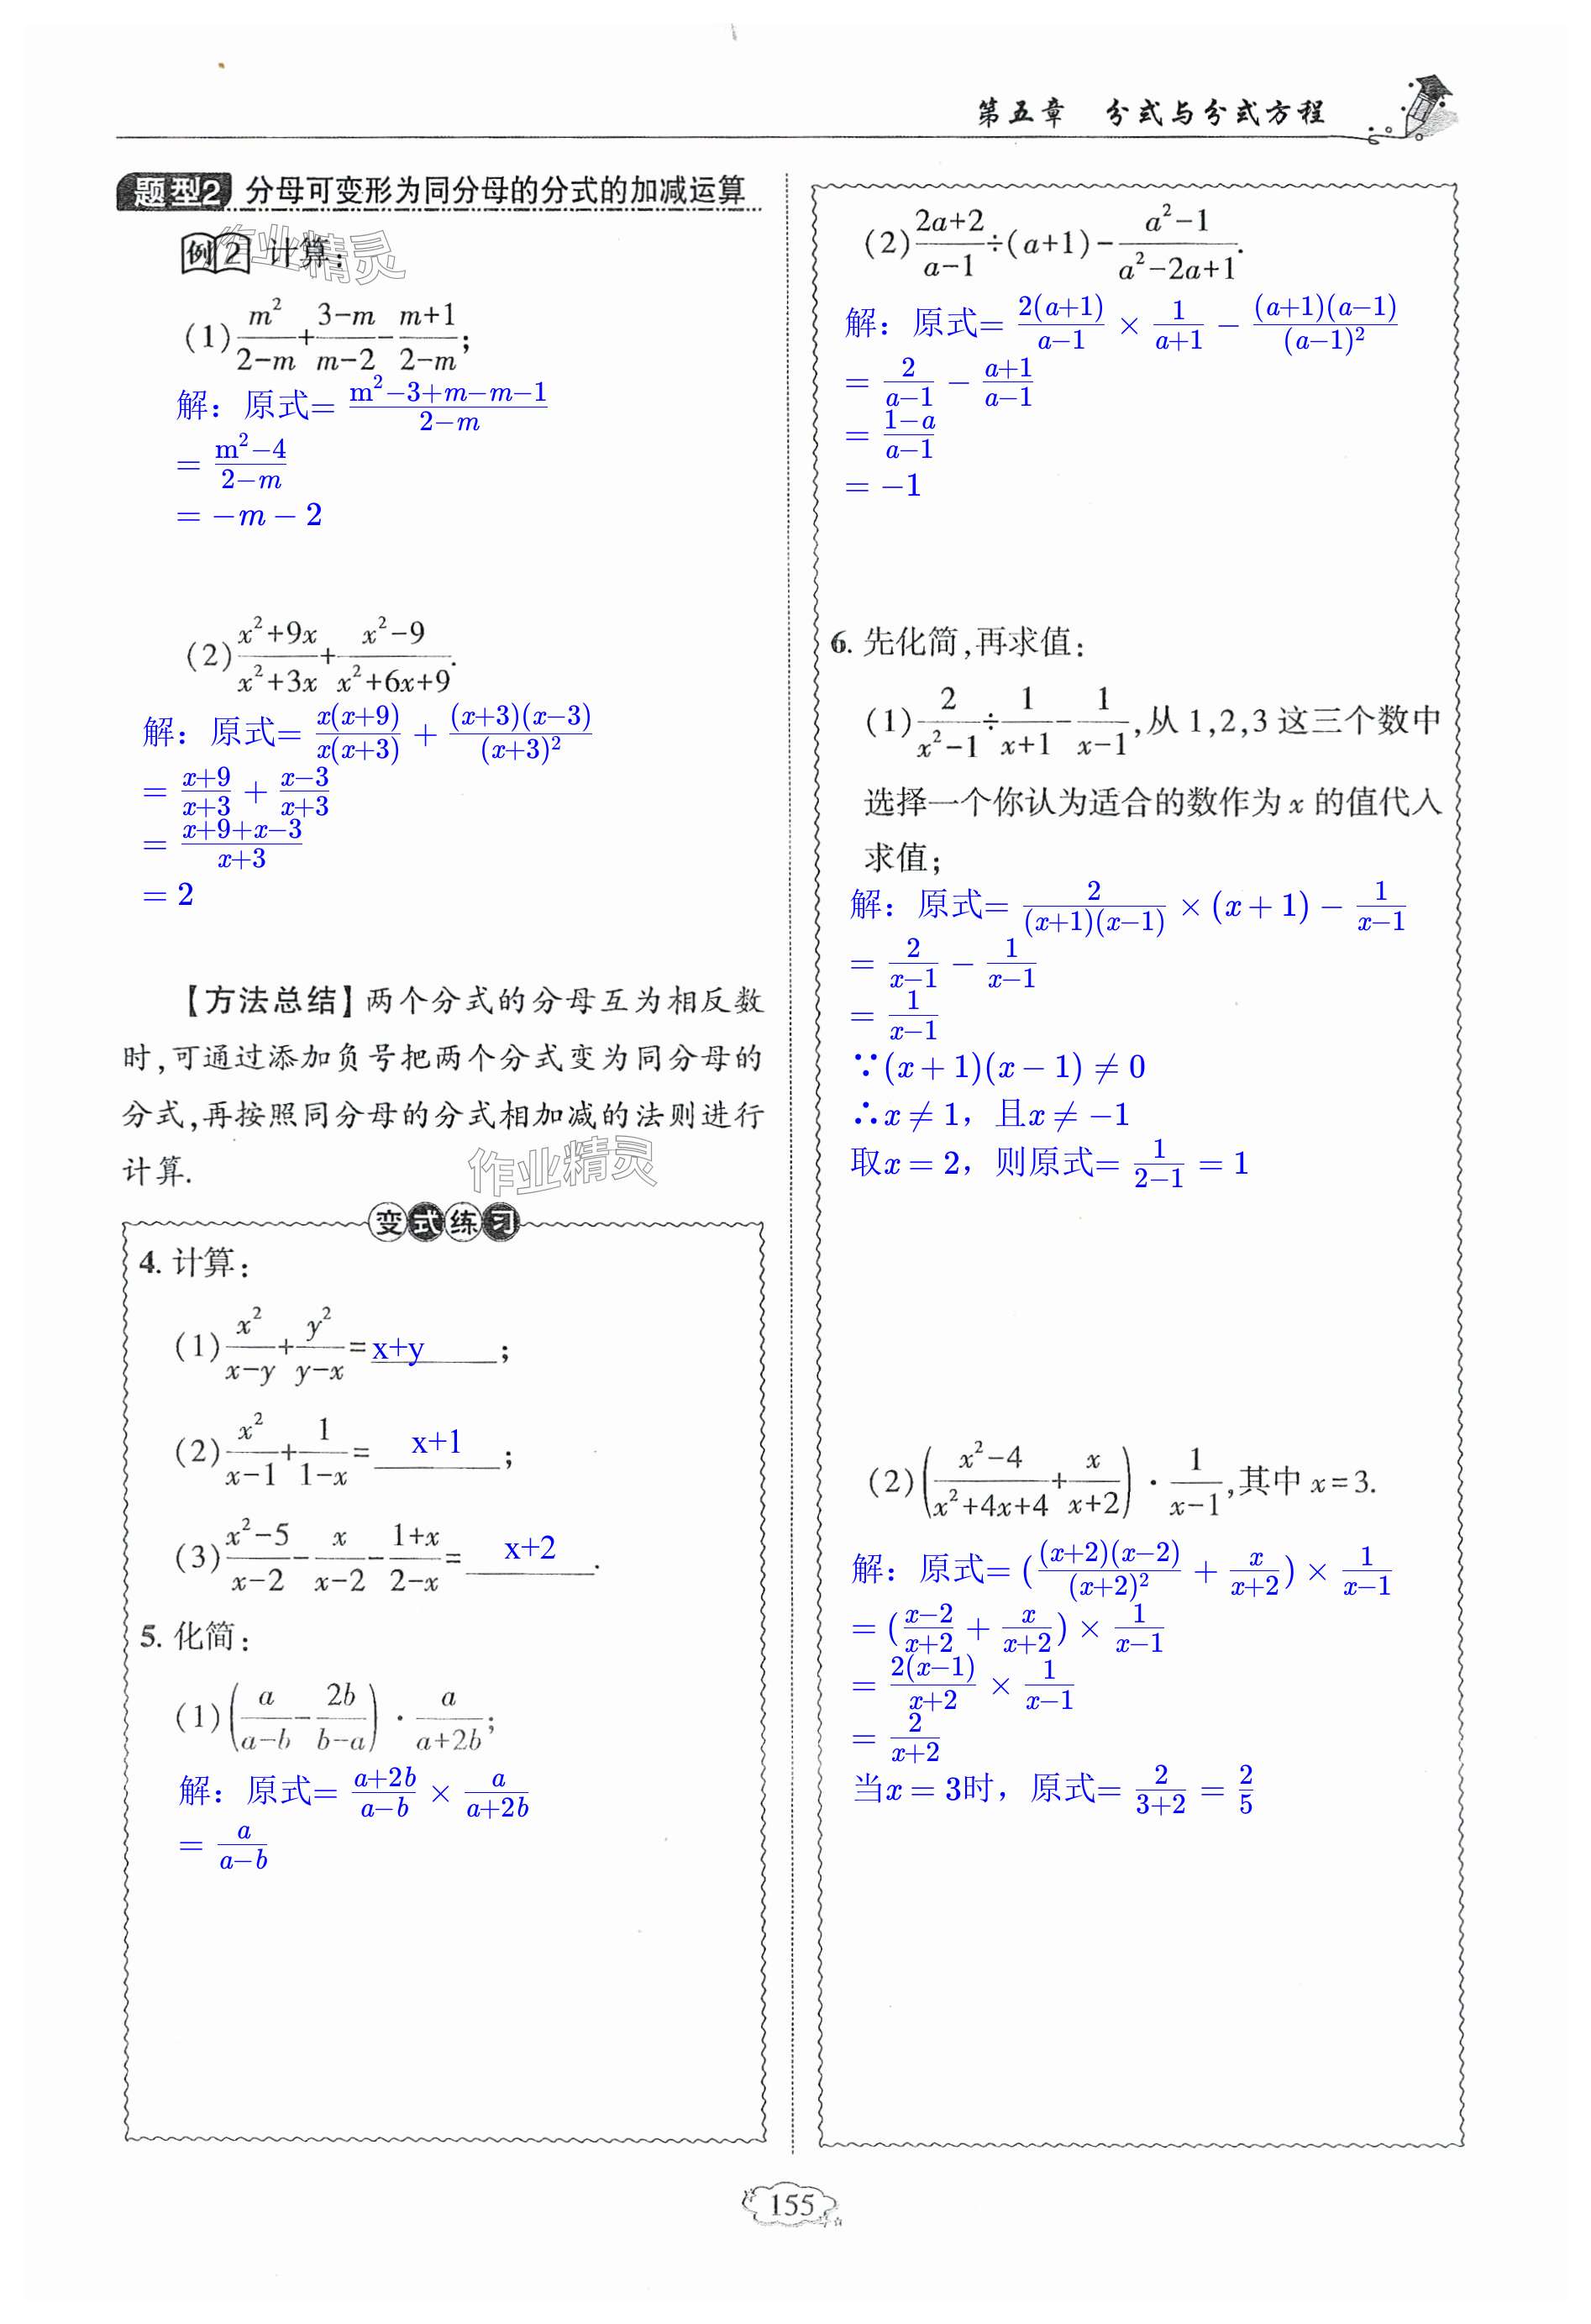 第五章 分式与分式方程
题型2 分母可变形为同分母的分式的加减运算
例2 计算:
(1) m²/(2-m) + (3-m)/(m-2) - (m+1)/(2-m);
解：原式= (m²-3+m-m-1)/(2-m)
= (m²-4)/(2-m)
= -m-2
(2) (x²+9x)/(x²+3x) + (x²-9)/(x²+6x+9).
解：原式= x(x+9)/x(x+3) + (x+3)(x-3)/(x+3)²
= (x+9)/(x+3) + (x-3)/(x+3)
= (x+9+x-3)/(x+3)
= 2
【方法总结】两个分式的分母互为相反数
时,可通过添加负号把两个分式变为同分母的
分式,再按照同分母的分式相加减的法则进行
计算.
作业精灵
变式练习
4. 计算:
(1) x²/(x-y) + y²/(y-x) = x+y ;
(2) x²/(x-1) + 1/(1-x) = x+1 ;
(3) (x²-5)/(x-2) - x/(x-2) - (1+x)/(2-x) = x+2 .
5. 化简:
(1) (a/(a-b) - 2b/(b-a)) · a/(a+2b);
解：原式= (a+2b)/(a-b) × a/(a+2b)
= a/(a-b)
(2) (2a+2)/(a-1) ÷ (a+1) - (a²-1)/(a²-2a+1).
解：原式= 2(a+1)/(a-1) × 1/(a+1) - (a+1)(a-1)/(a-1)²
= 2/(a-1) - (a+1)/(a-1)
= (1-a)/(a-1)
= -1
6. 先化简,再求值:
(1) 2/(x²-1) ÷ 1/(x+1) - 1/(x-1),从 1,2,3 这三个数中
选择一个你认为适合的数作为 x 的值代入
求值;
解：原式= 2/(x+1)(x-1) × (x+1) - 1/(x-1)
= 2/(x-1) - 1/(x-1)
= 1/(x-1)
∵(x+1)(x-1)≠0
∴x≠1，且x≠-1
取x=2，则原式= 1/(2-1) = 1
(2) ((x²-4)/(x²+4x+4) + x/(x+2)) · 1/(x-1),其中 x=3.
解：原式= ((x+2)(x-2)/(x+2)² + x/(x+2)) × 1/(x-1)
= ((x-2)/(x+2) + x/(x+2)) × 1/(x-1)
= 2(x-1)/(x+2) × 1/(x-1)
= 2/(x+2)
当x=3时，原式= 2/(3+2) = 2/5
155